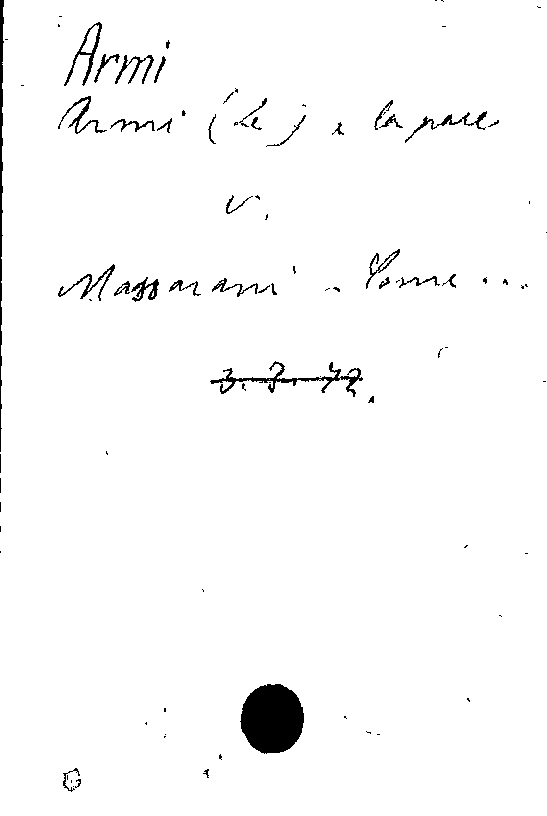 Armi
Armi (Le) e la pace
V.
Massarani - Come ...
3. 3. 72.